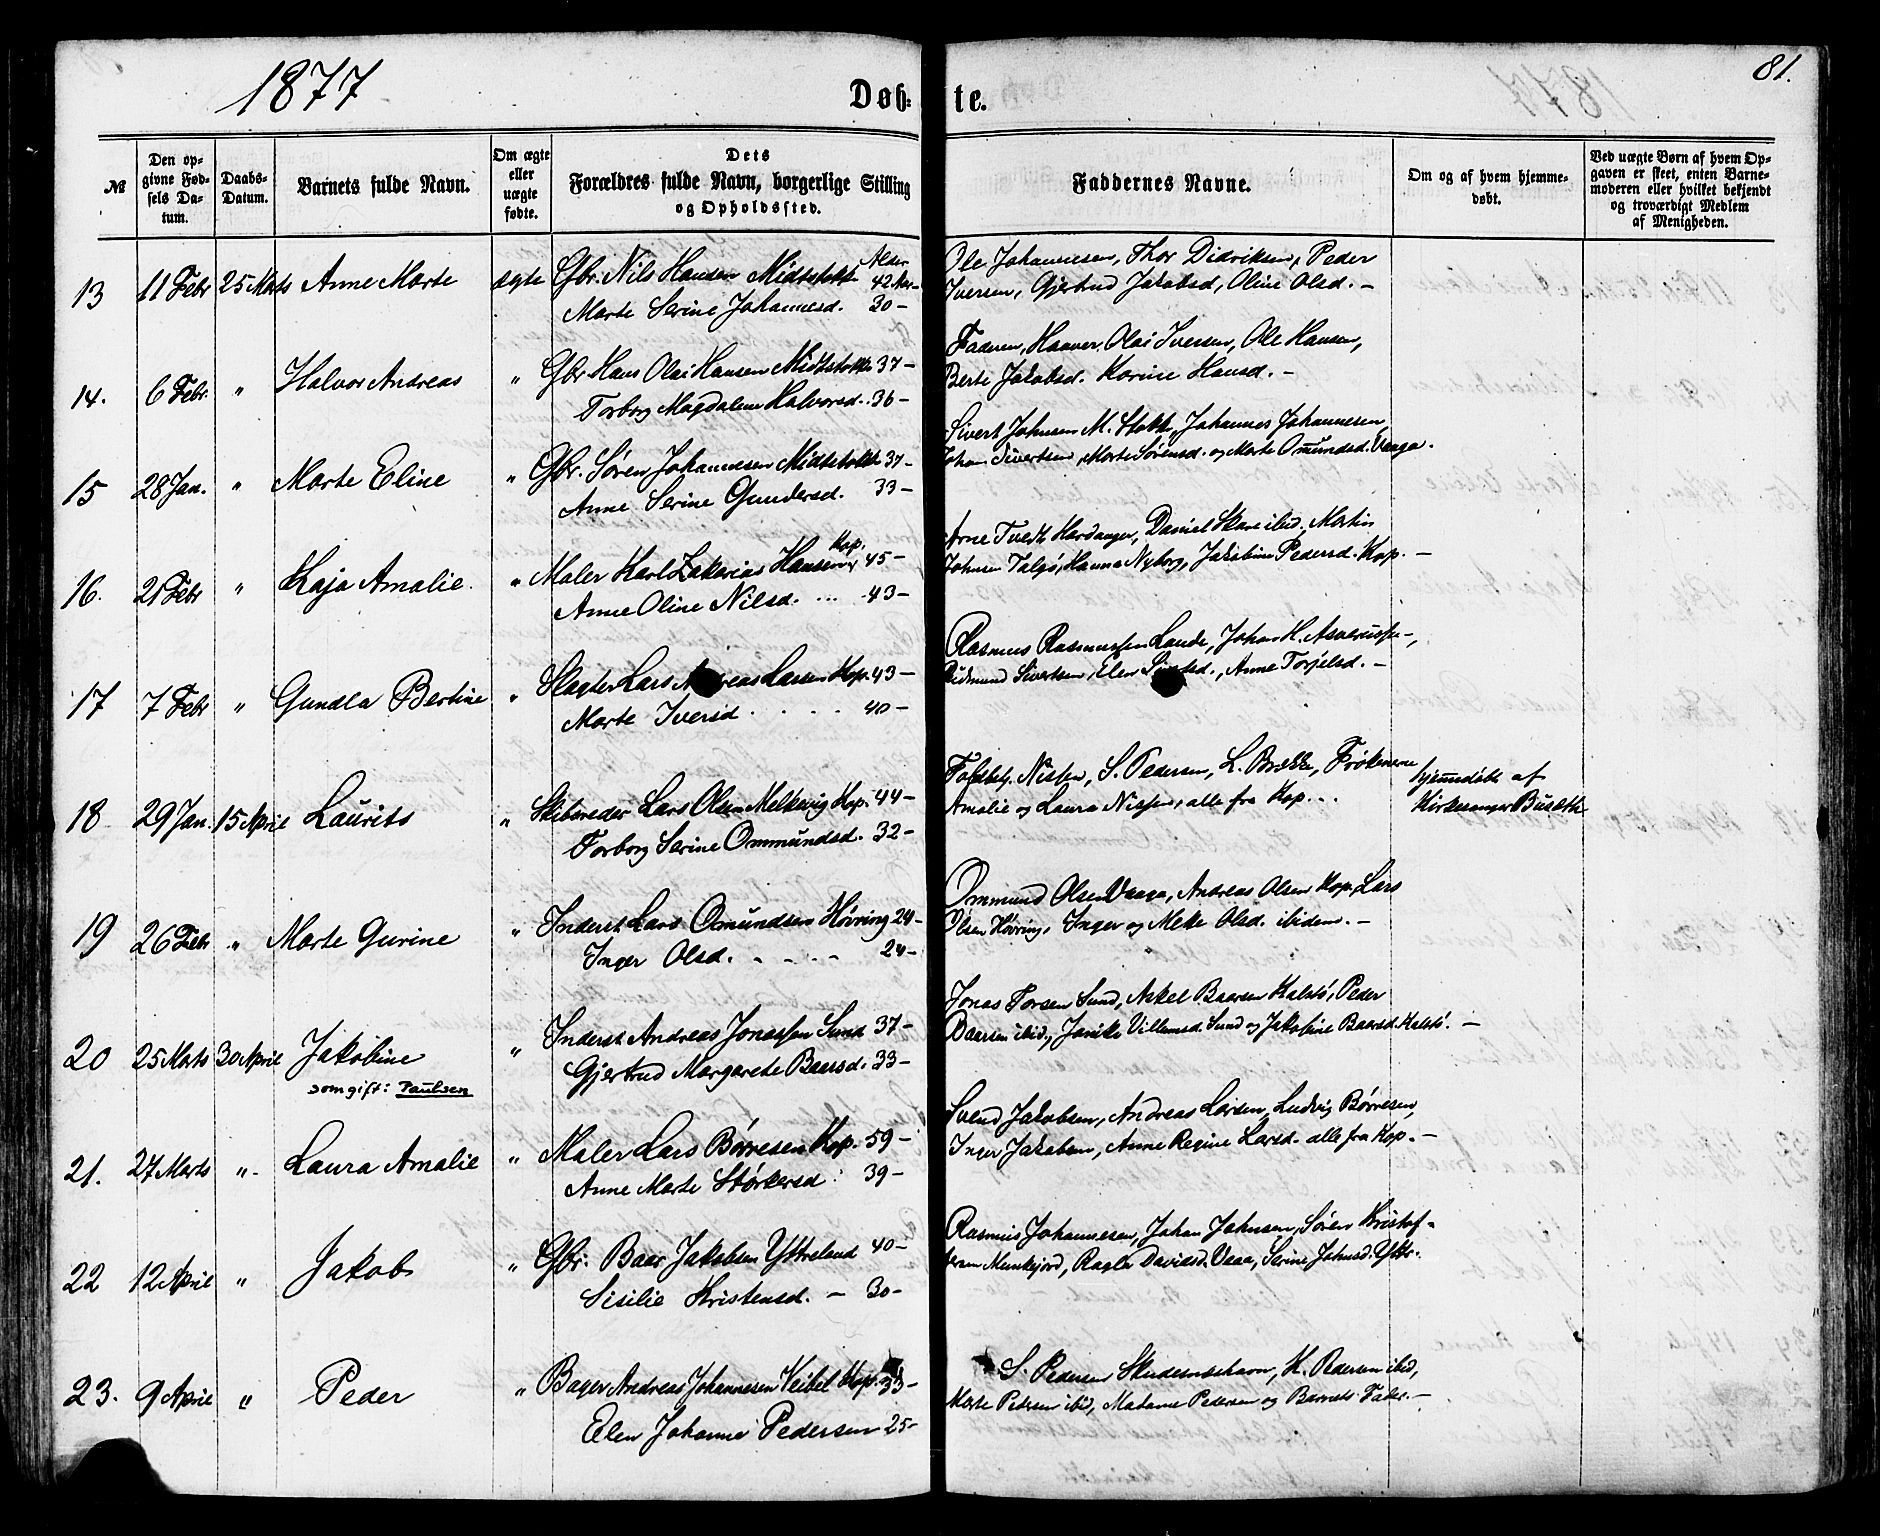 1877
Døb-
te.
81.
№
Den op-
givne Fød-
sels Da-
tum.
Daabs-
Datum.
Barnets fulde Navn.
Om ægte
eller
uægte
fødte.
Dets
Forældres fulde Navn, borgerlige Stilling
og Opholdssted.
Faddernes Navne.
Om og af hvem hjemme-
døbt.
Ved uægte Børn af hvem Op-
gaven er skeet, enten Barne-
moderen eller hvilket bekjendt
og troværdigt Medlem
af Menigheden.
13 11 Febr 25 Marts Anne Marte ægte Gbr. Nils Hansen Midtstokke Alder 42 Aar-
Marte Serine Johannesd. 30-
Ole Johannesen, Thor Didriksen, Peder
Iversen, Gjertrud Jakobsd, Oline Olsd. -
14. 6 Febr. " Halvor Andreas " Gbr. Hans Olai Hansen Midtstokke 37-
Torborg Magdalene Halvorsd. 36-
Faderen, Haaver, Olai Iversen, Ole Hansen,
Berte Jakobsd. Karine Hansd. -
15 28 Jan. " Marte Eline " Gbr. Søren Johannesen Midtstokke 37-
Anne Serine Gundersd. 33-
Sivert Johnsen M. Stokke, Johannes Johannesen,
Johan Sivertsen, Marte Sørensd. og Marte Omundsd. Vaaga.
16. 21 Febr " Kaja Amalie. " Maler Karl Zakarias Hansen Kop. 45-
Anne Oline Nilsd. ... 43-
Arne Tveth Hardanger, Daniel Skare ibid, Martin
Johnsen Talgø, Hanna Nyborg, Jakobine Pedersd. Kop. -
17 7 Febr " Gundla Bertine " Slagter Lars Andreas Larsen Kop. 43-
Marte Iversd. . . . . 40-
Rasmus Rasmussen Lande, Johan H. Asverussen,
Gudmund Sivertsen, Elen Sivertsd., Anne Torjelsd. -
18 29 Jan. 15 April Laurits " Skibsreder Lars Olsen Melkevig Kop. 44-
Torborg Serine Ommundsd. 32-
Toldbetj. Nissen, S. Pedersen, L. Brekke, Frøknerne
Amalie og Laura Nissen, alle fra Kop...
hjemmedøbt af
Kirkesanger Busæth
19 26 Febr " Marte Gurine " Inderst Lars Omundsen Høvring 24-
Inger Olsd. - - - - 24-
Ommund Olsen Vaaga, Andreas Olsen Kop, Lars
Olsen Høvring, Inger og Mette Olsd. ibidem. -
20 25 Marts 30 April Jakobine " Inderst Andreas Jonassen Sund 37-
som gift: Paulsen
Gjertrud Margarete Baarsd. 33-
Jonas Torsen Sund, Askel Baarsen Kalstø, Peder
Baarsen ibid, Janike Villemsd. Sund og Jakobine Baarsd. Kalstø. -
21. 27 Marts " Laura Amalie " Maler Lars Børresen Kop. 59-
Anne Marte Størkersd. 39-
Svend Jakobsen, Andreas Larsen, Ludvig Børresen,
Inger Jakobsen, Anne Regine Larsd. alle fra Kop. -
22 12 April " Jakob " Gbr. Baar Jakobsen Yttreland 40-
Sisilie Kristensd. - 30-
Rasmus Johannesen, Johan Johnsen, Søren Kristof-
fersen Munkejord, Ragle Davidsd. Veaa, Serine Johnsd. Yttr.
23. 9 April " Peder " Bager Andreas Johannesen Veibel Kop. 33-
Elen Johanne Pedersen 25-
S. Pedersen Skudesneshavn, H. Pedersen ibid,
Marte Pedersen ibid, Madame Pedersen og Barnets Fader. -